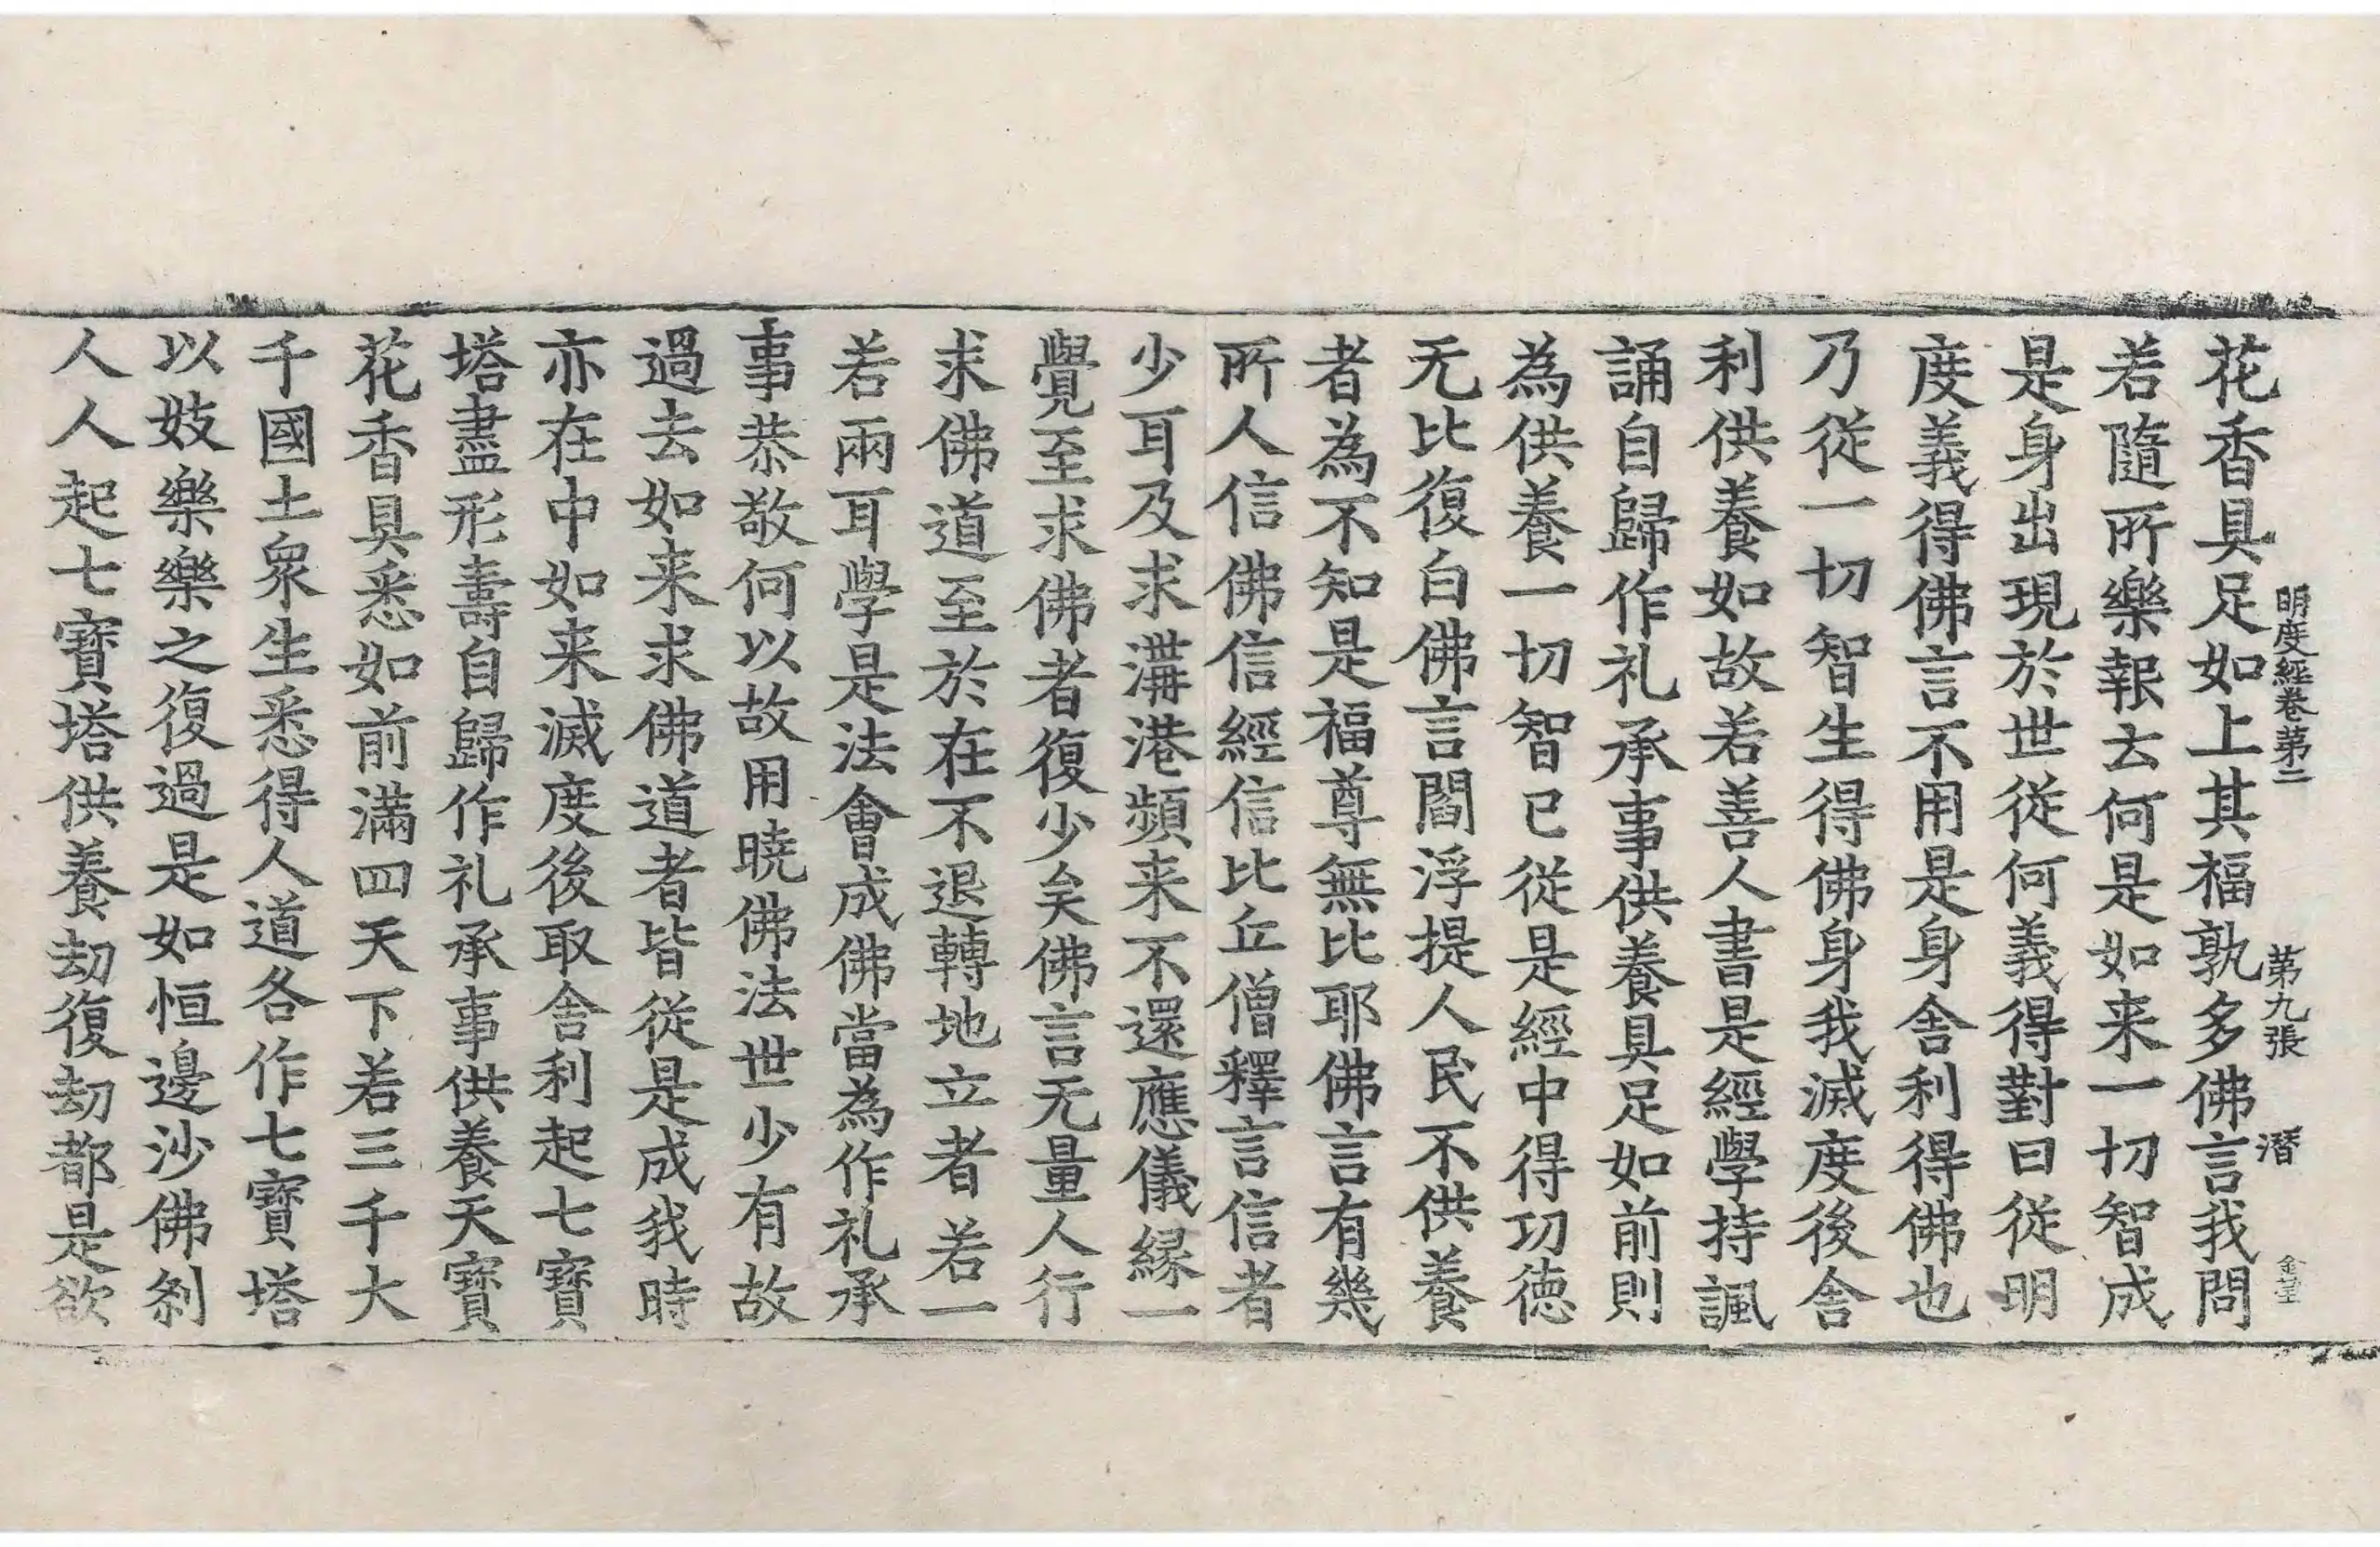 明度經卷第二　第九張　潛　金堂
花香具足如上其福孰多佛言我問
若隨所樂報去何是如来一切智成
是身出現於世從何義得對曰從明
度義得佛言不用是身舍利得佛也
乃從一切智生得佛身我滅度後舍
利供養如故若善人書是經學持諷
誦自歸作礼承事供養具足如前則
為供養一切智已從是經中得功徳
无比復白佛言閻浮提人民不供養
者為不知是福尊無比耶佛言有幾
所人信佛信經信比丘僧釋言信者
少耳及求溝港頻来不還應儀縁一
覺至求佛者復少矣佛言无量人行
求佛道至於在不退轉地立者若一
若兩耳學是法會成佛當為作礼承
事恭敬何以故用曉佛法世少有故
過去如来求佛道者皆從是成我時
亦在中如来滅度後取舍利起七寶
塔盡形壽自歸作礼承事供養天寶
花香具悉如前滿四天下若三千大
千國土衆生悉得人道各作七寶塔
以妓樂樂之復過是如恒邊沙佛剎
人人起七寶塔供養劫復劫都是欲